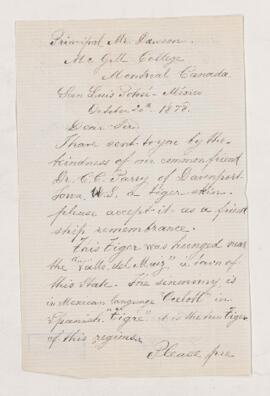 Principal Mr. Dawson.
Mc Gill College
Montreal Canada
San Luis Potosi - México
October 20th 1878.
Dear Sir.
I have sent to you by the
kindness of our common friend
Dr. C. C. Parry of Davenport
Iowa, U.S. a tiger skin
please accept it as a friend
ship remembrance.
This Tiger was hunged near
the "Valle del Maiz" a town of
this State. The sinonimy is
in Mexican language "Ocelotl" in
Spanish "Tigre" it is the true Tiger
of this regions
Please